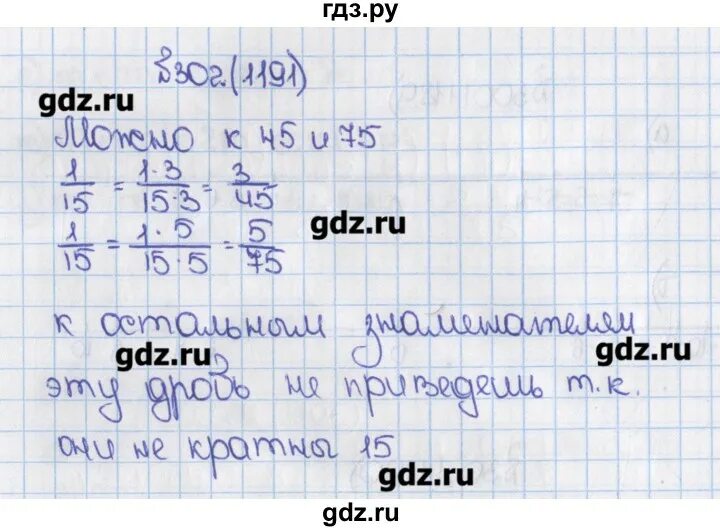 гдз.ру
№302.(1191)
gdz.ru
Можно к 45 и 75
1/15 = 1·3/15·3 = 3/45
gdz.ru
1/15 = 1·5/15·5 = 5/75
к остальным знаменателям
gdz.ru
gdz.ru
эту дробь не приведешь т.к.
они не кратны 15
gdz.ru
gdz.ru